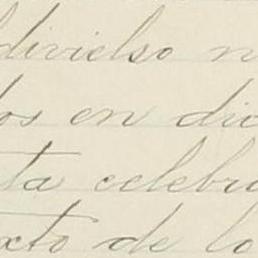 divielso n
os en dic
ta celebr
xto de lo